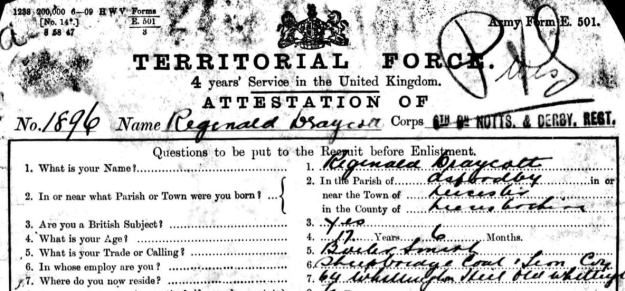 1238 200,000 6—09 H W V Forms
[No. 14*.] E. 501
8 58 47 3
a
Army Form E. 501.
TERRITORIAL FORCE.
4 years' Service in the United Kingdom.
ATTESTATION OF
No. 1896 Name Reginald Draycott Corps 6TH BN NOTTS. & DERBY. REGT.
Questions to be put to the Recruit before Enlistment.
1. What is your Name? 1. Reginald Draycott
2. In or near what Parish or Town were you born? 2. In the Parish of Asfordby in or
near the Town of Leicester
in the County of Leicestershire
3. Are you a British Subject? 3. Yes
4. What is your Age? 4. 17 Years 6 Months.
5. What is your Trade or Calling? 5. Boiler Smith
6. In whose employ are you? 6. Sheepbridge Coal & Iron Coy
7. Where do you now reside? 7. 69 Whittington Hill Old Whittington